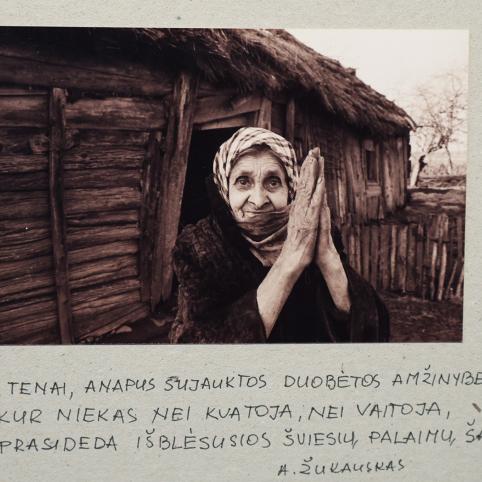 TENAI, ANAPUS SUJAUKTOS DUOBĖTOS AMŽINYBĖ
KUR NIEKAS NEI KVATOJA, NEI VAITOJA,
PRASIDEDA IŠBLĖSUSIOS ŠVIESIŲ PALAIMŲ,
A. ŽUKAUSKAS